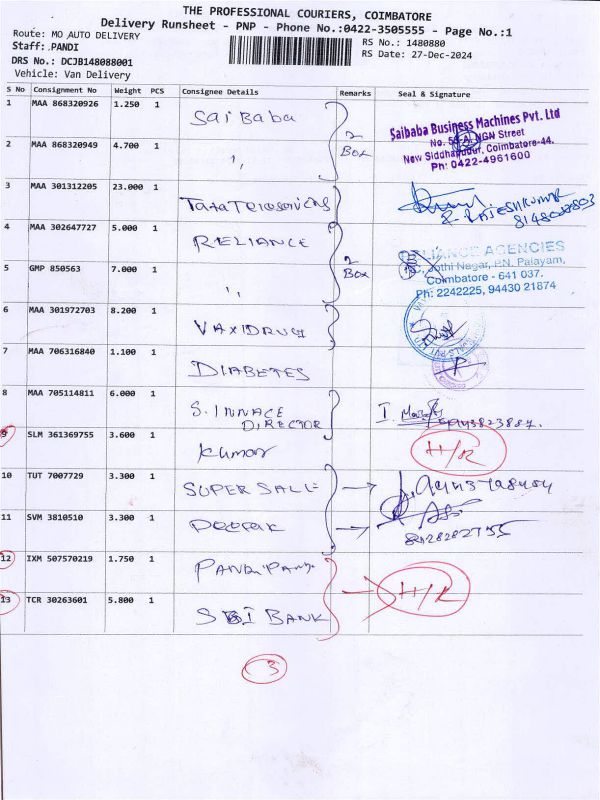 THE PROFESSIONAL COURIERS, COIMBATORE
Delivery Runsheet - PNP - Phone No.:0422-3505555 - Page No.:1
Route: MO ,AUTO DELIVERY
RS No.: 1480880
Staff: PANDI
RS Date: 27-Dec-2024
DRS No.: DCJB148088001
Vehicle: Van Delivery
S No Consignment No Weight PCS Consignee Details Remarks Seal & Signature
1 MAA 868320926 1.250 1 Sai Baba
Saibaba Business Machines Pvt. Ltd
NGN Street
New Siddhapudur, Coimbatore-44.
Ph: 0422-4961600
2 MAA 868320949 4.700 1 ,, 2 Box
3 MAA 301312205 23.000 1 Tata Teleservices
R. RAJESHKUMAR
4 MAA 302647727 5.000 1 RELIANCE
RELIANCE AGENCIES
Jothi Nagar, P.N. Palayam,
Coimbatore - 641 037.
Ph: 2242225, 94430 21874
5 GMP 850563 7.000 1 ,, 2 Box
6 MAA 301972703 8.200 1 VAXIDRUG
7 MAA 706316840 1.100 1 DIABETES
8 MAA 705114811 6.000 1 S. INNACE DIRECTOR
9 SLM 361369755 3.600 1 Kumar H/R
10 TUT 7007729 3.300 1 SUPER SALE
11 SVM 3810510 3.300 1 Deepak
12 IXM 507570219 1.750 1
13 TCR 30263601 5.800 1 SBI BANK H/R
3